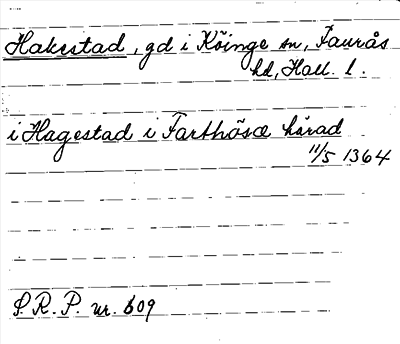 Hakestad, gd i Köinge sn, Faurås
hd, Hall. l.
i Hagestad i Farthösæ härad
11/5 1364
S.R.P. nr. 609